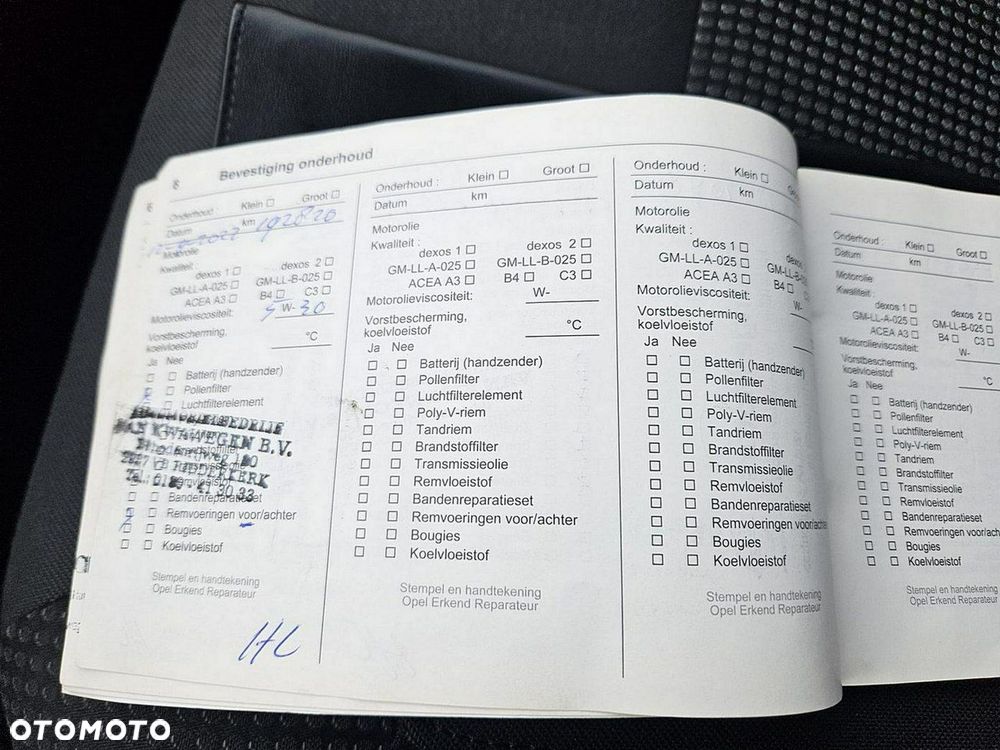 8 Bevestiging onderhoud
Onderhoud : Klein Groot
Datum km
2022 192820
Motorolie
Kwaliteit :
dexos 1 dexos 2
GM-LL-A-025 GM-LL-B-025
ACEA A3 B4 C3
Motorolieviscositeit: 5 W- 30
Vorstbescherming,
koelvloeistof °C
Ja Nee
Batterij (handzender)
Pollenfilter
Luchtfilterelement
KWAWEGEN B.V.
Tel.
Remvloeistof
Bandenreparatieset
Remvoeringen voor/achter
Bougies
Koelvloeistof
Stempel en handtekening
Opel Erkend Reparateur
HL
Onderhoud : Klein Groot
Datum km
Motorolie
Kwaliteit :
dexos 1 dexos 2
GM-LL-A-025 GM-LL-B-025
ACEA A3 B4 C3
Motorolieviscositeit: W-
Vorstbescherming,
koelvloeistof °C
Ja Nee
Batterij (handzender)
Pollenfilter
Luchtfilterelement
Poly-V-riem
Tandriem
Brandstoffilter
Transmissieolie
Remvloeistof
Bandenreparatieset
Remvoeringen voor/achter
Bougies
Koelvloeistof
Stempel en handtekening
Opel Erkend Reparateur
Onderhoud : Klein
Datum km
Motorolie
Kwaliteit :
dexos 1 dexos
GM-LL-A-025 GM-LL-B
ACEA A3 B4
Motorolieviscositeit: W-
Vorstbescherming,
koelvloeistof
Ja Nee
Batterij (handzender)
Pollenfilter
Luchtfilterelement
Poly-V-riem
Tandriem
Brandstoffilter
Transmissieolie
Remvloeistof
Bandenreparatieset
Remvoeringen voor/achter
Bougies
Koelvloeistof
Stempel en handtekening
Opel Erkend Reparateur
Onderhoud : Klein Groot
Datum km
Motorolie
Kwaliteit :
dexos 1 dexos 2
GM-LL-A-025 GM-LL-B-025
ACEA A3 B4 C3
Motorolieviscositeit: W-
Vorstbescherming,
koelvloeistof °C
Ja Nee
Batterij (handzender)
Pollenfilter
Luchtfilterelement
Poly-V-riem
Tandriem
Brandstoffilter
Transmissieolie
Remvloeistof
Bandenreparatieset
Remvoeringen voor/achter
Bougies
Koelvloeistof
Stempel en handtekening
Opel Erkend Reparateur
OTOMOTO